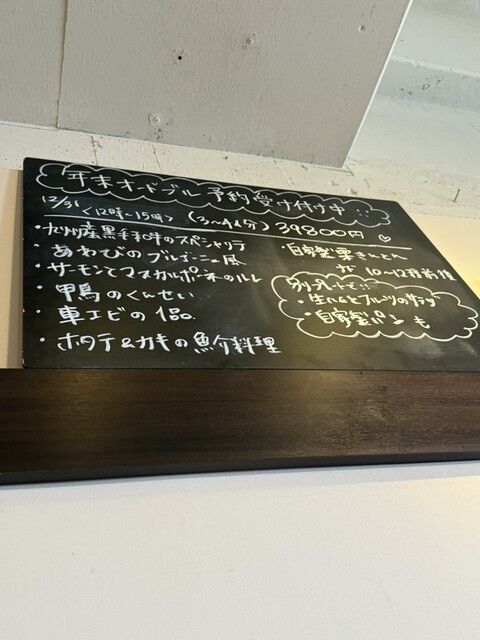 年末オードブル予約受け付け中
12/31 <12時~15時> (3~4人分) 39800円 ♡
・九州産黒毛和牛のスペシャリテ
・あわびのブルゴーニュ風
・サーモンとマスカルポーネのルレ
・鴨のくんせい
・車エビの
・ホタテ&カキの魚介料理
自家製栗きんとん
が 10~12種前後
別売りです
・生ハムとフルーツの
・自家製パンも